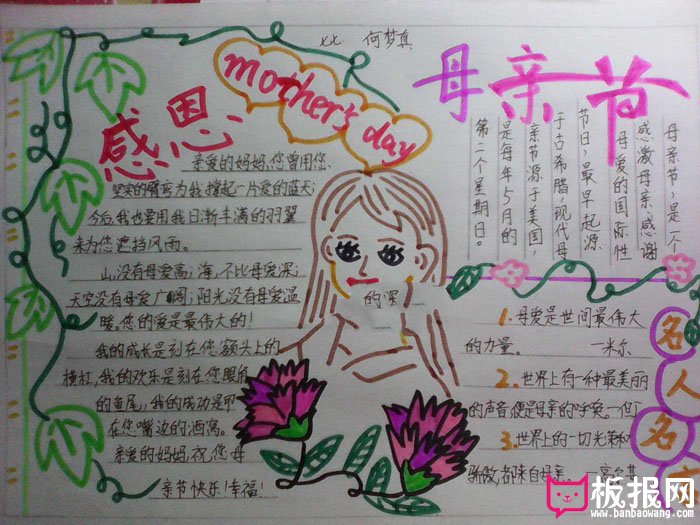 七七 何梦真
感恩
mother's day
母亲节
亲爱的妈妈,您曾用您
坚实的臂弯为我撑起一片爱的蓝天;
今后,我也要用我日渐丰满的羽翼
来为您遮挡风雨。
山,没有母爱高;海,不比母爱深;
天空没有母爱广阔;阳光没有母爱温
暖。您的爱是最伟大的!
我的成长是刻在您额头上的
横杠,我的欢乐是刻在您眼角
的鱼尾,我的成功是
在您嘴边的酒窝。
亲爱的妈妈,祝您母
亲节快乐!幸福!
的深
母亲节,是一个
感激母亲,感谢
母爱的国际性
节日,最早起源
于古希腊,现代母
亲节源于美国,
是每年5月的
第二个星期日。
1.母爱是世间最伟大
的力量。 —米尔
2.世界上有一种最美丽
的声音,便是母亲的呼唤。—但丁
3.世界上的一切光荣和
骄傲,都来自母亲。
名人名
板报网
www.banbaowang.com